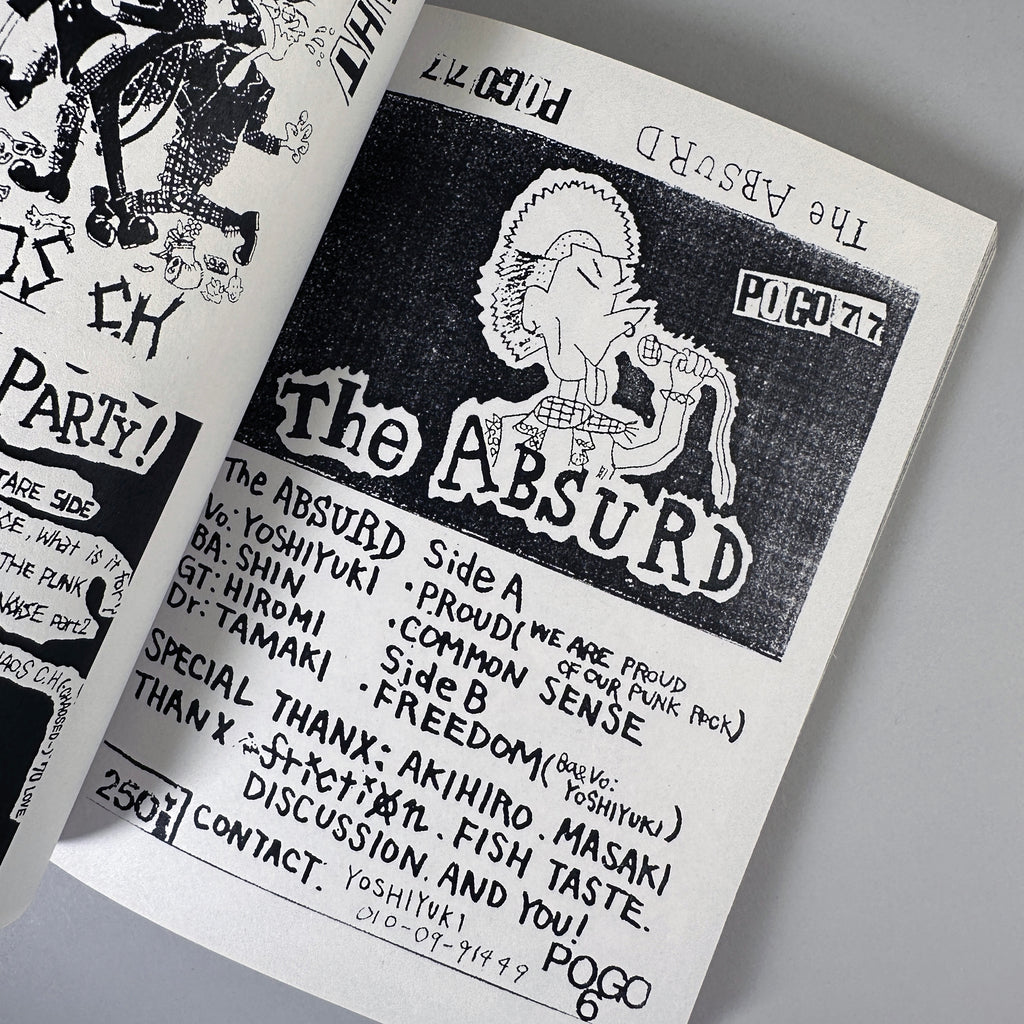 WHAT
OS CH
PARTY!
TARE SIDE
CE, What is it for?
THE PUNK
NOISE Part2
TO LOVE
POGO 77
The ABSURD
POGO 77
The ABSURD
The ABSURD
Vo: YOSHIYUKI
BA: SHIN
GT: HIROMI
Dr: TAMAKI
Side A
・PROUD(WE ARE PROUD
OF OUR PUNK ROCK)
・COMMON SENSE
Side B
・FREEDOM(Ba&Vo:
YOSHIYUKI)
SPECIAL THANX: AKIHIRO. MASAKI
THANX friction. FISH TASTE.
DISCUSSION. AND YOU!
250
CONTACT: YOSHIYUKI
010-09-91449
POGO
6